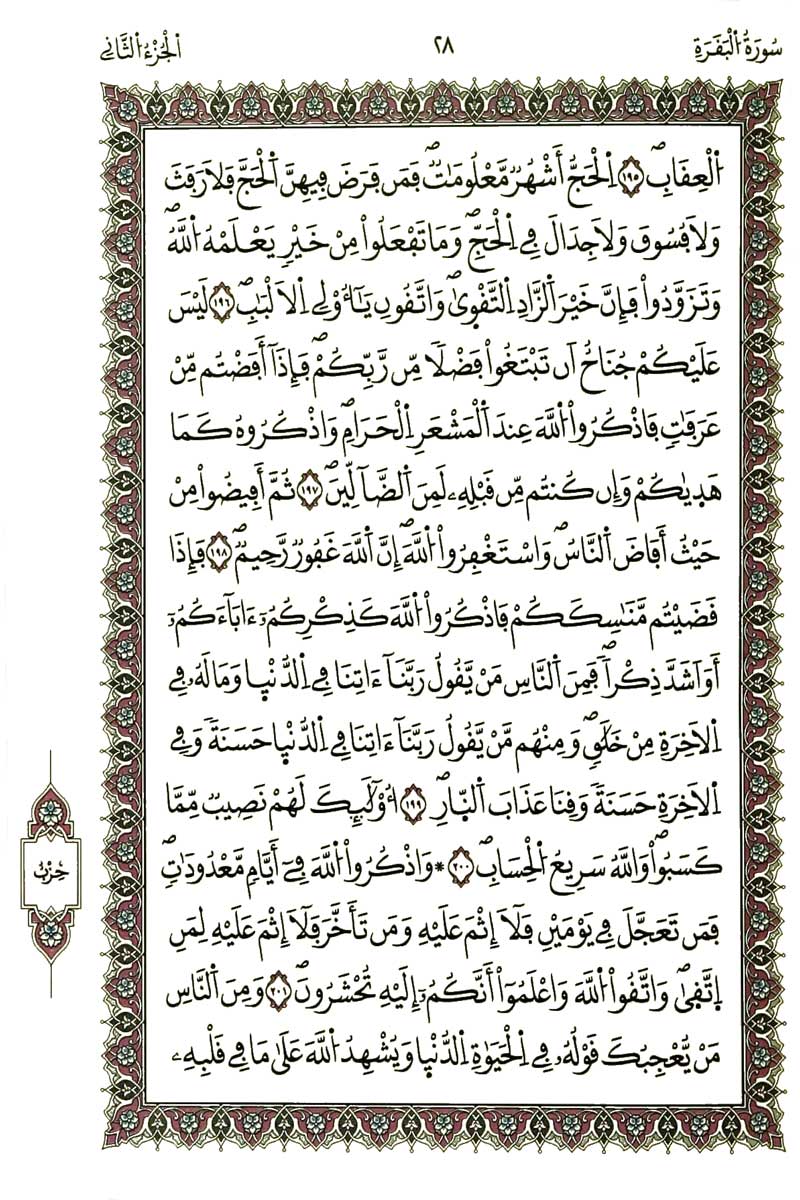 سُورَةُ الْبَقَرَةِ
٢٨
الْجُزْءُ الثَّانِي
اَ۬لْعِقَابِۖ ١٩٥ اِ۬لْحَجُّ أَشْهُرٞ مَّعْلُومَٰتٞۖ فَمَن فَرَضَ فِيهِنَّ اَ۬لْحَجَّ فَلَا رَفَثَ
وَلَا فُسُوقَ وَلَا جِدَالَ فِے اِ۬لْحَجِّۖ وَمَا تَفْعَلُواْ مِنْ خَيْرٖ يَعْلَمْهُ اُ۬للَّهُۖ
وَتَزَوَّدُواْ فَإِنَّ خَيْرَ اَ۬لزَّادِ اِ۬لتَّقْو۪يٰۖ وَاتَّقُونِ يَٰٓأُوْلِے اِ۬لَالْبَٰبِۖ ١٩٦ لَيْسَ
عَلَيْكُمْ جُنَاحٌ اَن تَبْتَغُواْ فَضْلاٗ مِّن رَّبِّكُمْۖ فَإِذَآ أَفَضْتُم مِّنْ
عَرَفَٰتٖ فَاذْكُرُواْ اُ۬للَّهَ عِندَ اَ۬لْمَشْعَرِ اِ۬لْحَرَامِۖ وَاذْكُرُوهُ كَمَا
هَد۪يٰكُمْ وَإِن كُنتُم مِّن قَبْلِهِۦ لَمِنَ اَ۬لضَّآلِّينَۖ ١٩٧ ثُمَّ أَفِيضُواْ مِنْ
حَيْثُ أَفَاضَ اَ۬لنَّاسُۖ وَاسْتَغْفِرُواْ اُ۬للَّهَۖ إِنَّ اَ۬للَّهَ غَفُورٞ رَّحِيمٞۖ ١٩٨ فَإِذَا
قَضَيْتُم مَّنَٰسِكَكُمْ فَاذْكُرُواْ اُ۬للَّهَ كَذِكْرِكُمُۥٓ ءَابَآءَكُمُۥٓ
أَوَ اَشَدَّ ذِكْراٗۖ فَمِنَ اَ۬لنَّاسِ مَنْ يَّقُولُ رَبَّنَآ ءَاتِنَا فِے اِ۬لدُّنْي۪ا وَمَا لَهُۥ فِے
اِ۬لَاخِرَةِ مِنْ خَلَٰقٖۖ وَمِنْهُم مَّنْ يَّقُولُ رَبَّنَآ ءَاتِنَا فِے اِ۬لدُّنْي۪ا حَسَنَةٗ وَفِے
اِ۬لَاخِرَةِ حَسَنَةٗ وَقِنَا عَذَابَ اَ۬لنّ۪ارِۖ ١٩٩ أُوْلَٰٓئِكَ لَهُمْ نَصِيبٞ مِّمَّا
كَسَبُواْۖ وَاللَّهُ سَرِيعُ اُ۬لْحِسَابِۖ ٢٠٠ *وَاذْكُرُواْ اُ۬للَّهَ فِےٓ أَيَّامٖ مَّعْدُودَٰتٖۖ
فَمَن تَعَجَّلَ فِے يَوْمَيْنِ فَلَآ إِثْمَ عَلَيْهِ وَمَن تَأَخَّرَ فَلَآ إِثْمَ عَلَيْهِ لِمَنِ
اِ۪تَّق۪يٰۖ وَاتَّقُواْ اُ۬للَّهَ وَاعْلَمُوٓاْ أَنَّكُمُۥٓ إِلَيْهِ تُحْشَرُونَۖ ٢٠١ وَمِنَ اَ۬لنَّاسِ
مَنْ يُّعْجِبُكَ قَوْلُهُۥ فِے اِ۬لْحَيَوٰةِ اِ۬لدُّنْي۪ا وَيُشْهِدُ اُ۬للَّهَ عَلَىٰ مَا فِے قَلْبِهِۦ
حِزْبُ